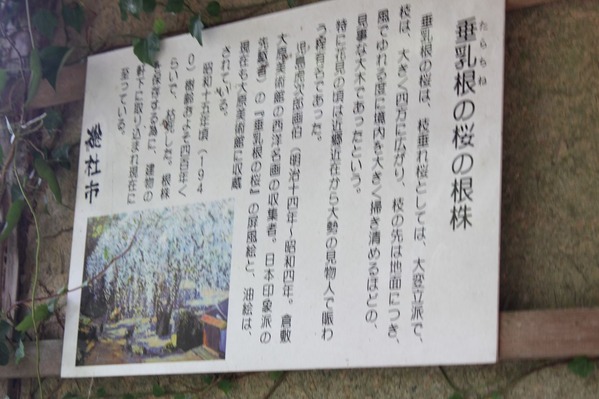 たらちね
垂乳根の桜の根株
垂乳根の桜は、枝垂れ桜としては、大変立派で、
枝は、大きく四方に広がり、枝の先は地面につき、
風でゆれる度に境内を大きく掃き清めるほどの、
見事な大木であったという。
特に花見の頃は近郷近在から大勢の見物人で賑わ
う程有名であった。
児島虎次郎画伯（明治十四年～昭和四年。倉敷
大原美術館の西洋名画の収集者。日本印象派の
先駆者）の『垂乳根の桜』の屏風絵と、油絵は、
現在も大原美術館に収蔵
されている。
昭和十五年頃（194
0）樹齢およそ四百年く
らいで、枯死した。根株
を保存する為に、建物の
軒下に取り込まれ現在に
至っている。
総社市